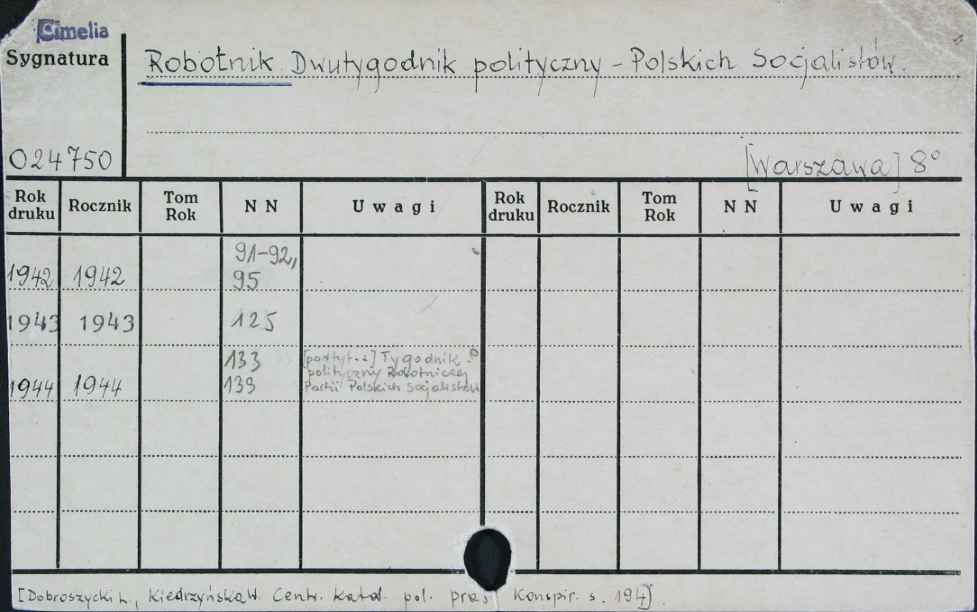 Cimelia
Sygnatura
Robotnik Dwutygodnik polityczny - Polskich Socjalistów.
024750
[Warszawa] 8°
Rok druku Rocznik Tom Rok N N Uwagi Rok druku Rocznik Tom Rok N N Uwagi
91-92,
1942 1942 95
1943 1943 125
133 [podtyt.:] Tygodnik
polityczny Robotniczej
1944 1944 139 Partii Polskich Socjalistów
[Dobroszycki L., Kiedrzyńska W. Centr. katal. pol. prasy Konspir. s. 194].